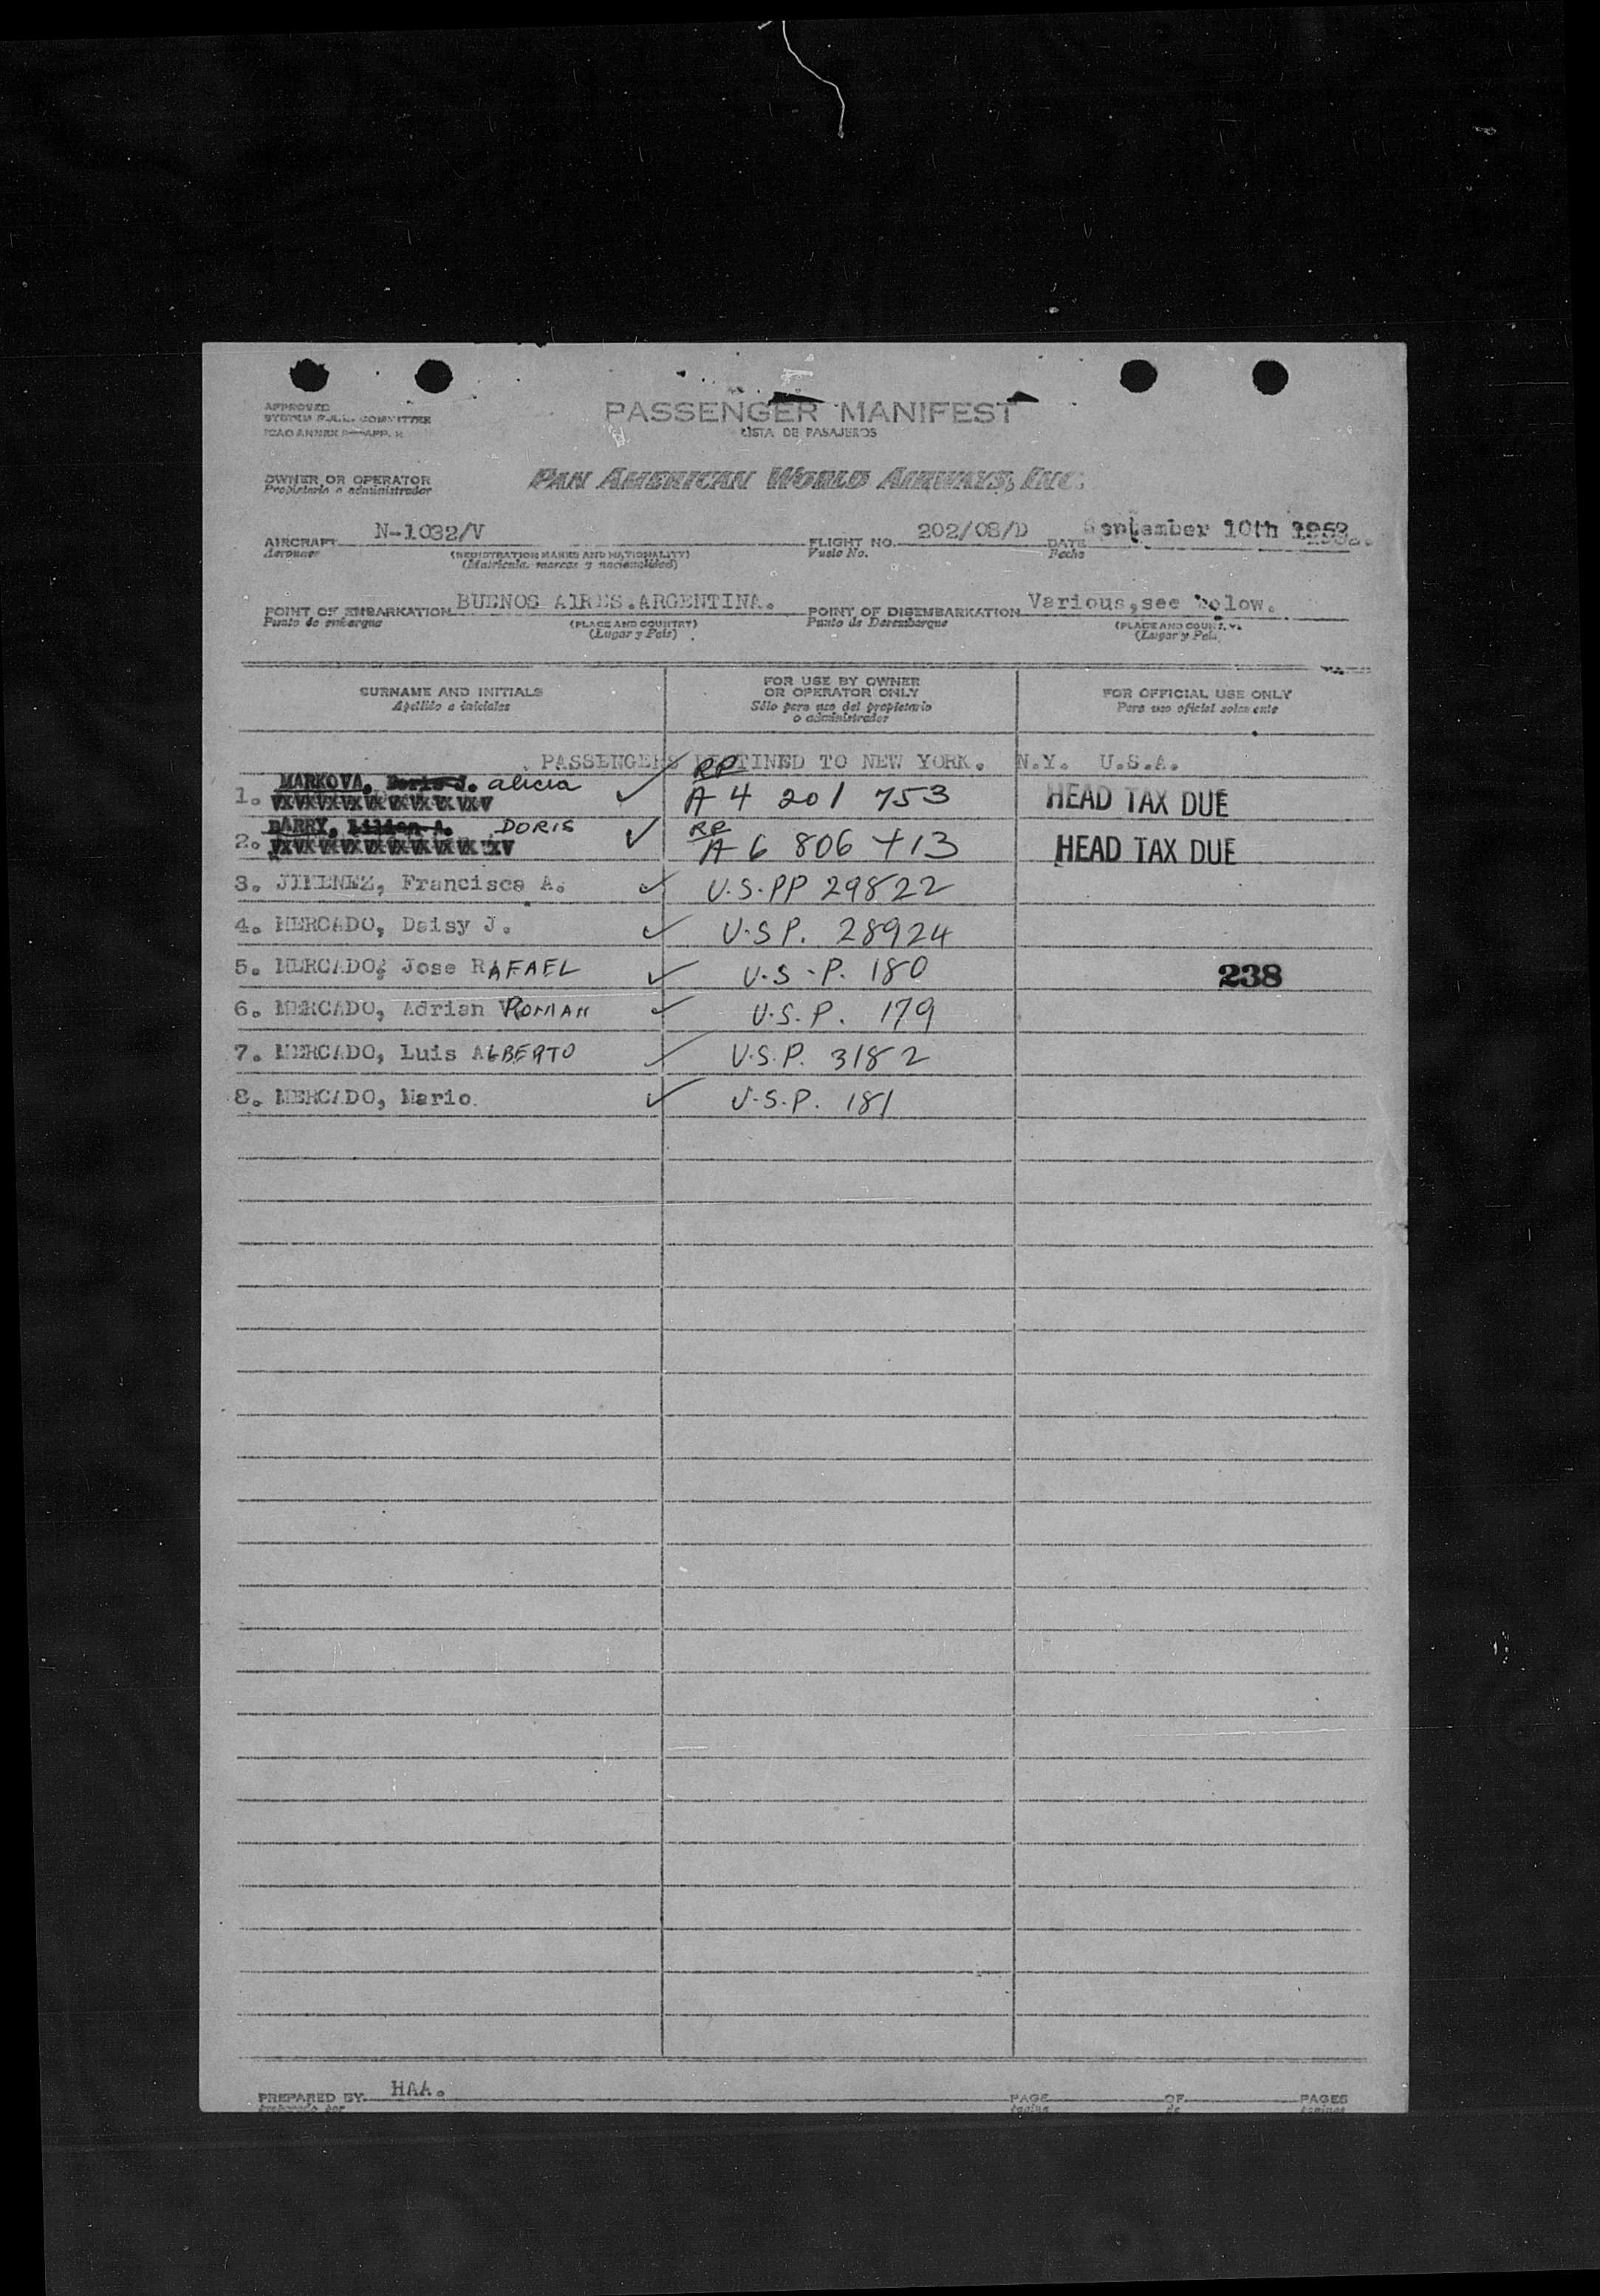 PASSENGER MANIFEST
LISTA DE PASAJEROS
APPROVED
SYSTEM F.A.L. COMMITTEE
ICAO ANNEX 9—APP. 2
OWNER OR OPERATOR PAN AMERICAN WORLD AIRWAYS, INC.
Propietario o administrador
AIRCRAFT N-1032/V FLIGHT NO. 202/08/D DATE September 10th 1952.
Aeronave (REGISTRATION MARKS AND NATIONALITY) Vuelo No. Fecha
(Matrícula, marcas y nacionalidad)
POINT OF EMBARKATION BUENOS AIRES.ARGENTINA. POINT OF DISEMBARKATION Various,see below.
Punto de embarque (PLACE AND COUNTRY) Punto de Desembarque (PLACE AND COUNTRY)
(Lugar y País) (Lugar y País)
SURNAME AND INITIALS FOR USE BY OWNER OR OPERATOR ONLY FOR OFFICIAL USE ONLY
Apellido e iniciales Sólo para uso del propietario o administrador Para uso oficial solamente
PASSENGERS DESTINED TO NEW YORK. N.Y. U.S.A.
1. MARKOVA, Doris J. alicia ✓ RP A 4 201 753 HEAD TAX DUE
2. BARRY, Lilian A. DORIS ✓ RP A 6 806 413 HEAD TAX DUE
3. JIMENEZ, Francisca A. ✓ U.S.PP 29822
4. MERCADO, Daisy J. ✓ U.S P. 28924
5. MERCADO, Jose RAFAEL ✓ U.S.P. 180 238
6. MERCADO, Adrian ROMAN ✓ U.S.P. 179
7. MERCADO, Luis ALBERTO ✓ U.S.P. 3182
8. MERCADO, Mario ✓ U.S.P. 181
PREPARED BY HAA. PAGE OF PAGES
Preparado por Página de Páginas